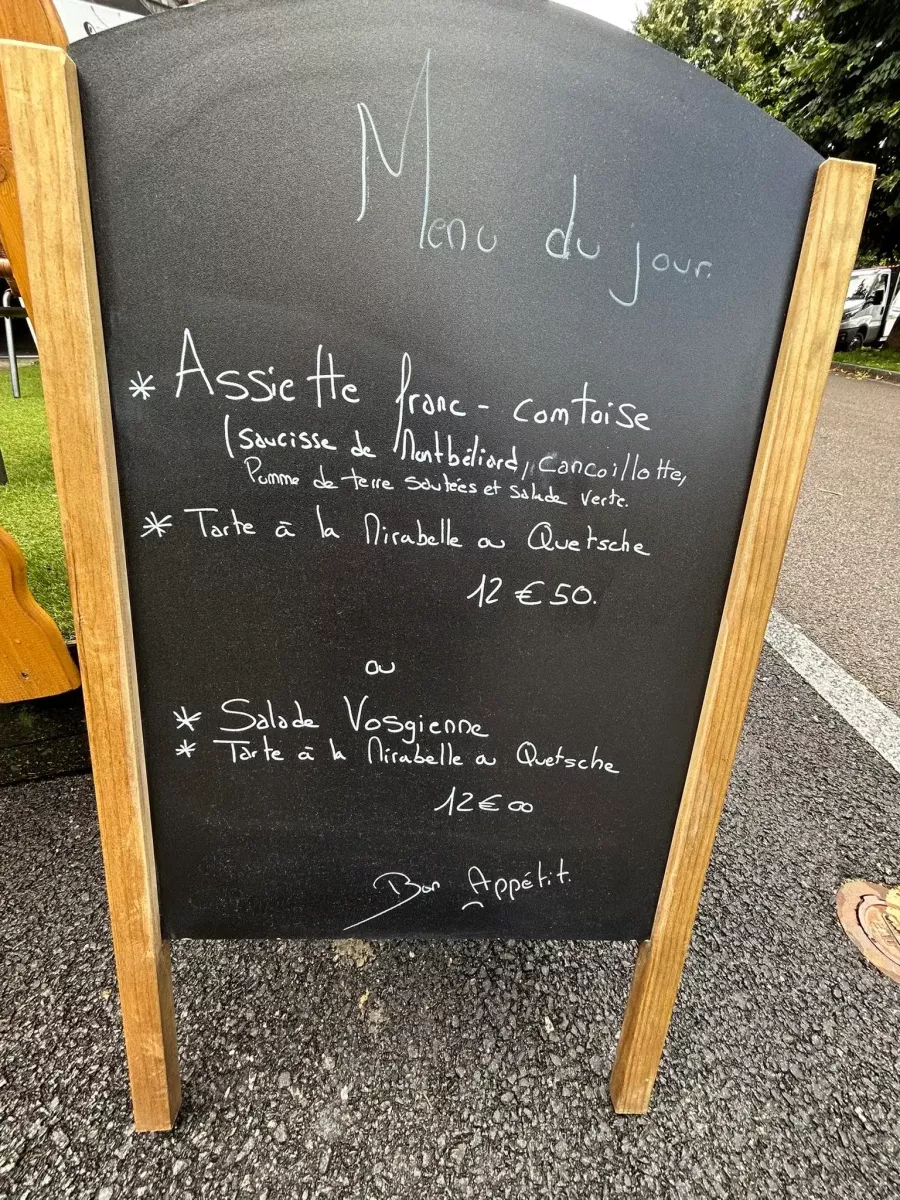 Menu du jour.
* Assiette franc-comtoise
(saucisse de Montbéliard, Cancoillotte,
Pomme de terre sautées et salade verte.
* Tarte à la Mirabelle ou Quetsche
12 € 50.
ou
* Salade Vosgienne
* Tarte à la Mirabelle ou Quetsche
12 € 00
Bon Appétit.